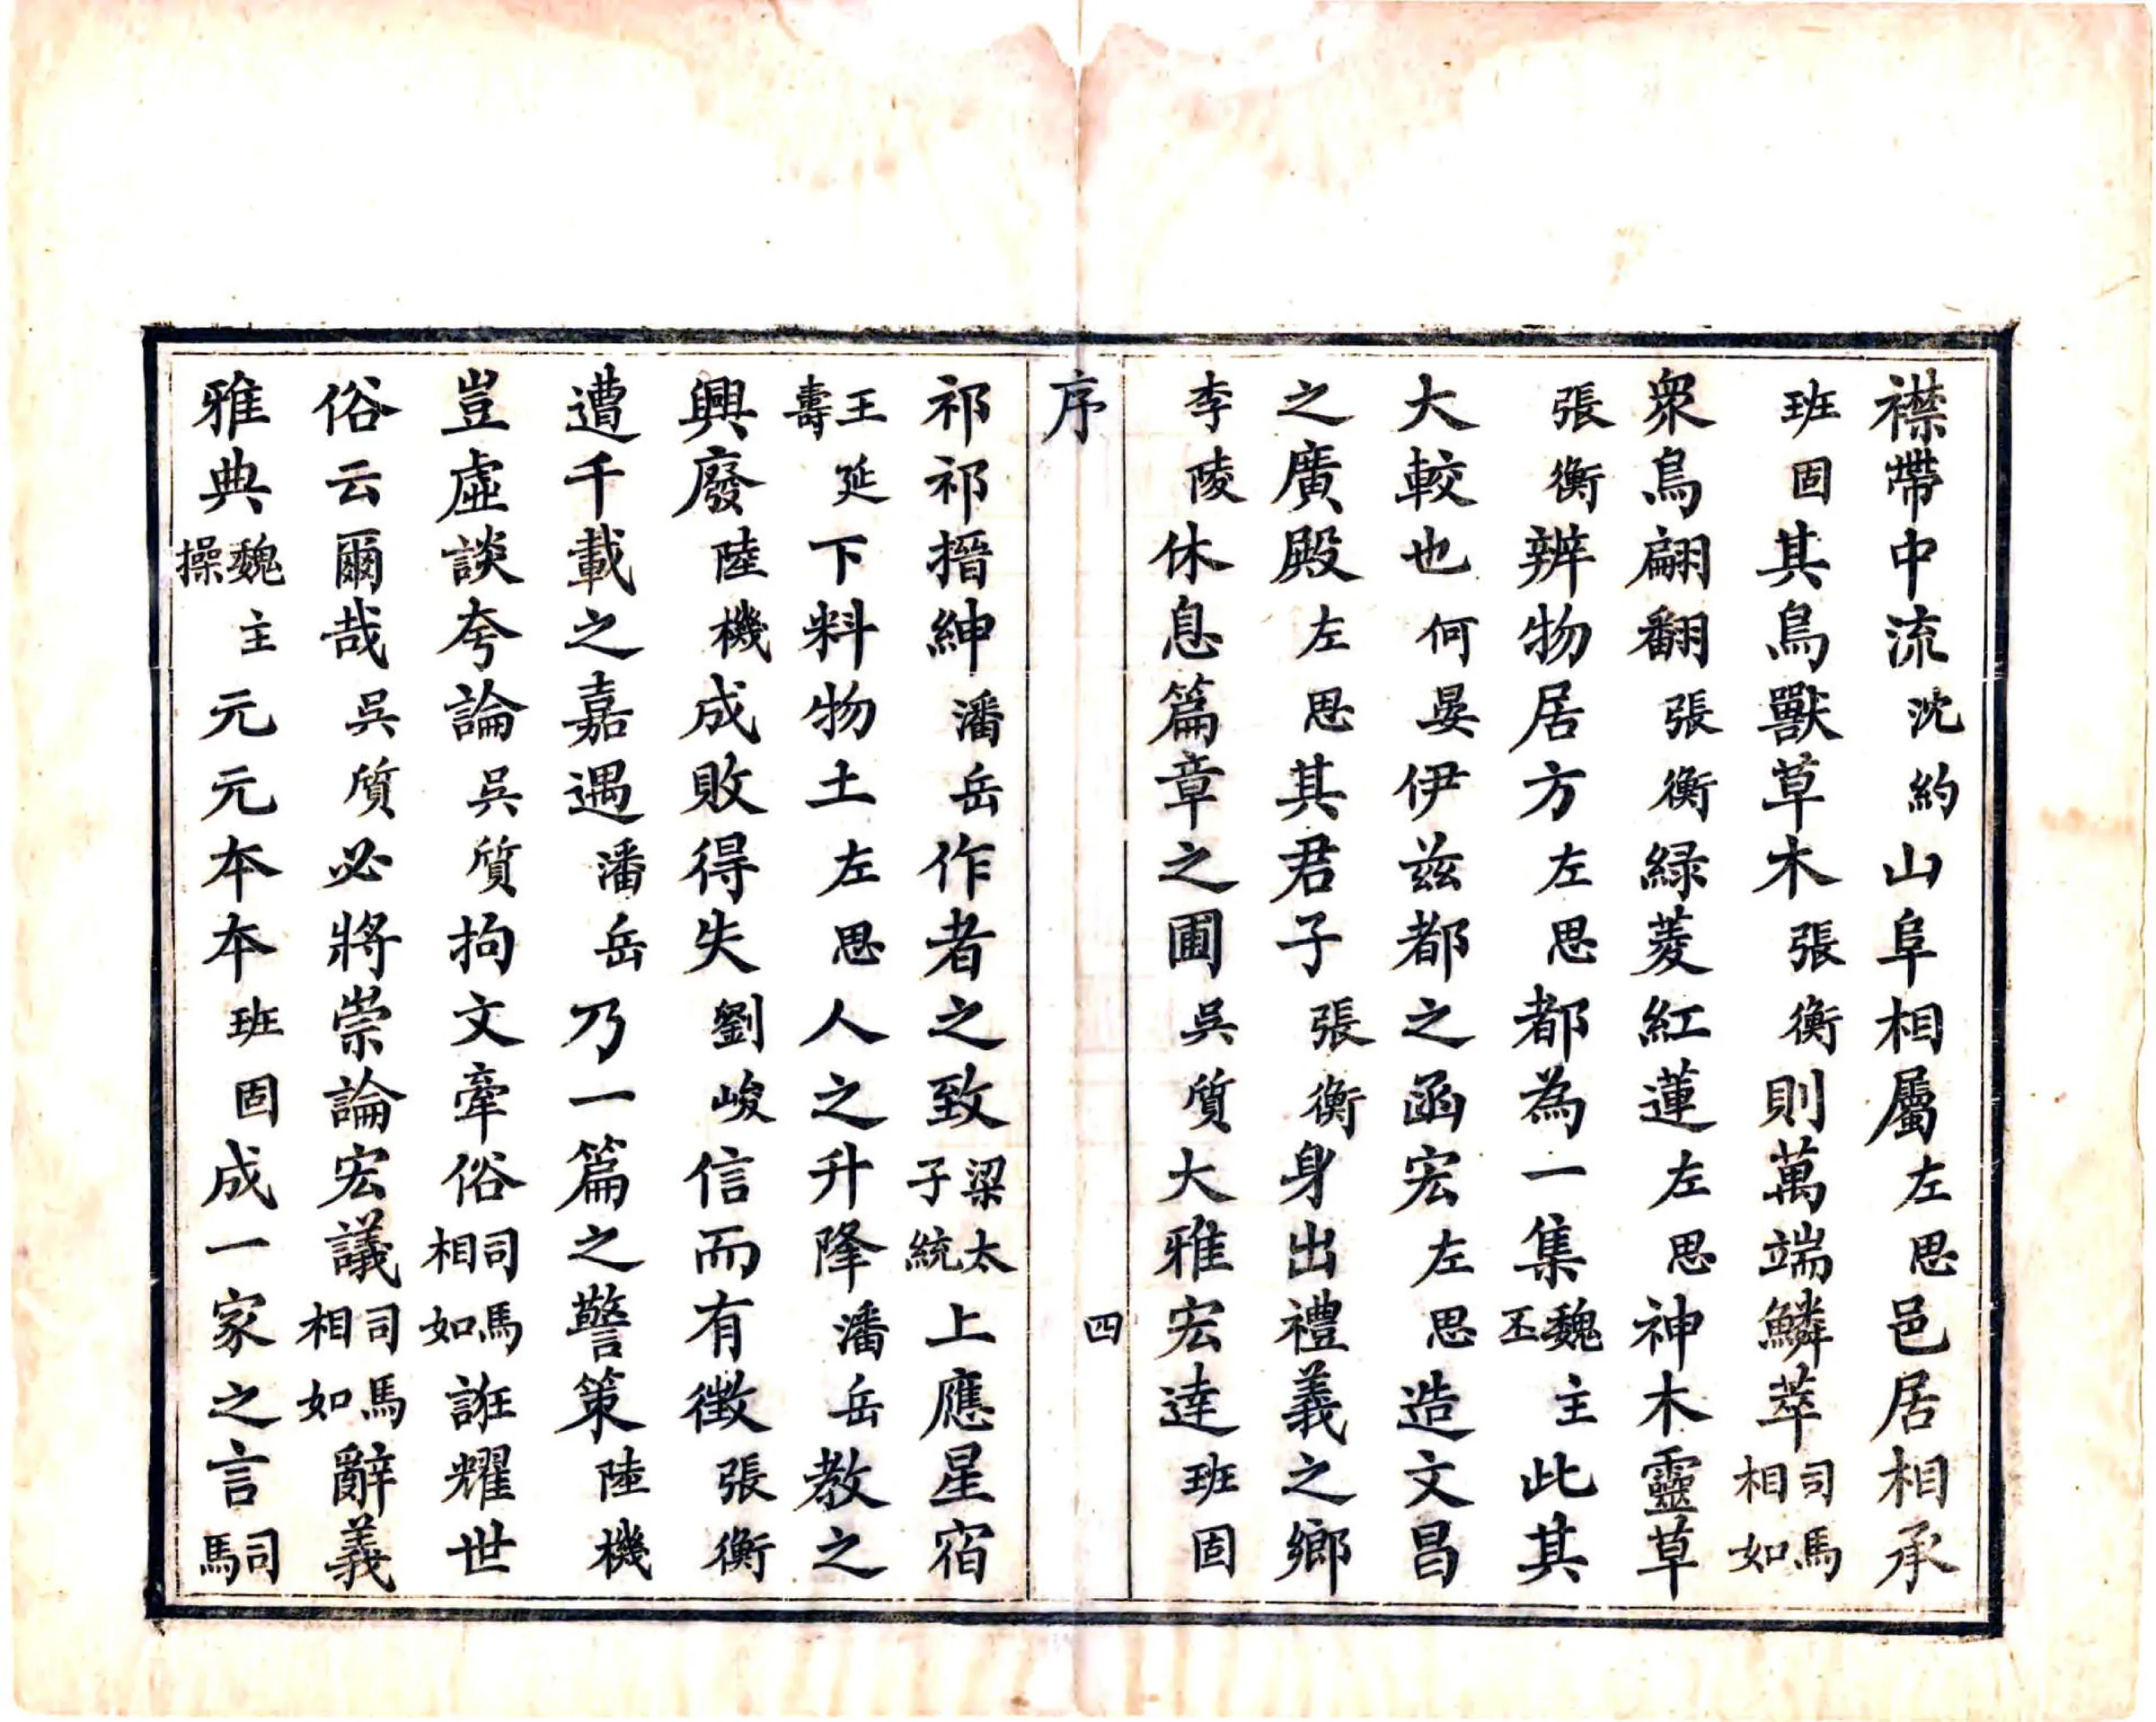 襟帶中流沈約山阜相屬左思邑居相承
班固其鳥獸草木張衡則萬端鱗萃司馬相如
衆鳥翩翻張衡緑菱紅蓮左思神木靈草
張衡辨物居方左思都為一集魏主丕此其
大較也何晏伊兹都之函宏左思造文昌
之廣殿左思其君子張衡身出禮義之鄉
李陵休息篇章之圃吳質大雅宏達班固
序 四
祁祁搢紳潘岳作者之致梁太子統上應星宿
王延壽下料物土左思人之升降潘岳教之
興廢陸機成敗得失劉峻信而有徵張衡
遭千載之嘉遇潘岳乃一篇之警策陸機
豈虛談夸論吳質拘文牽俗司馬相如誑耀世
俗云爾哉吳質必將崇論宏議司馬相如辭義
雅典魏主操元元本本班固成一家之言司馬